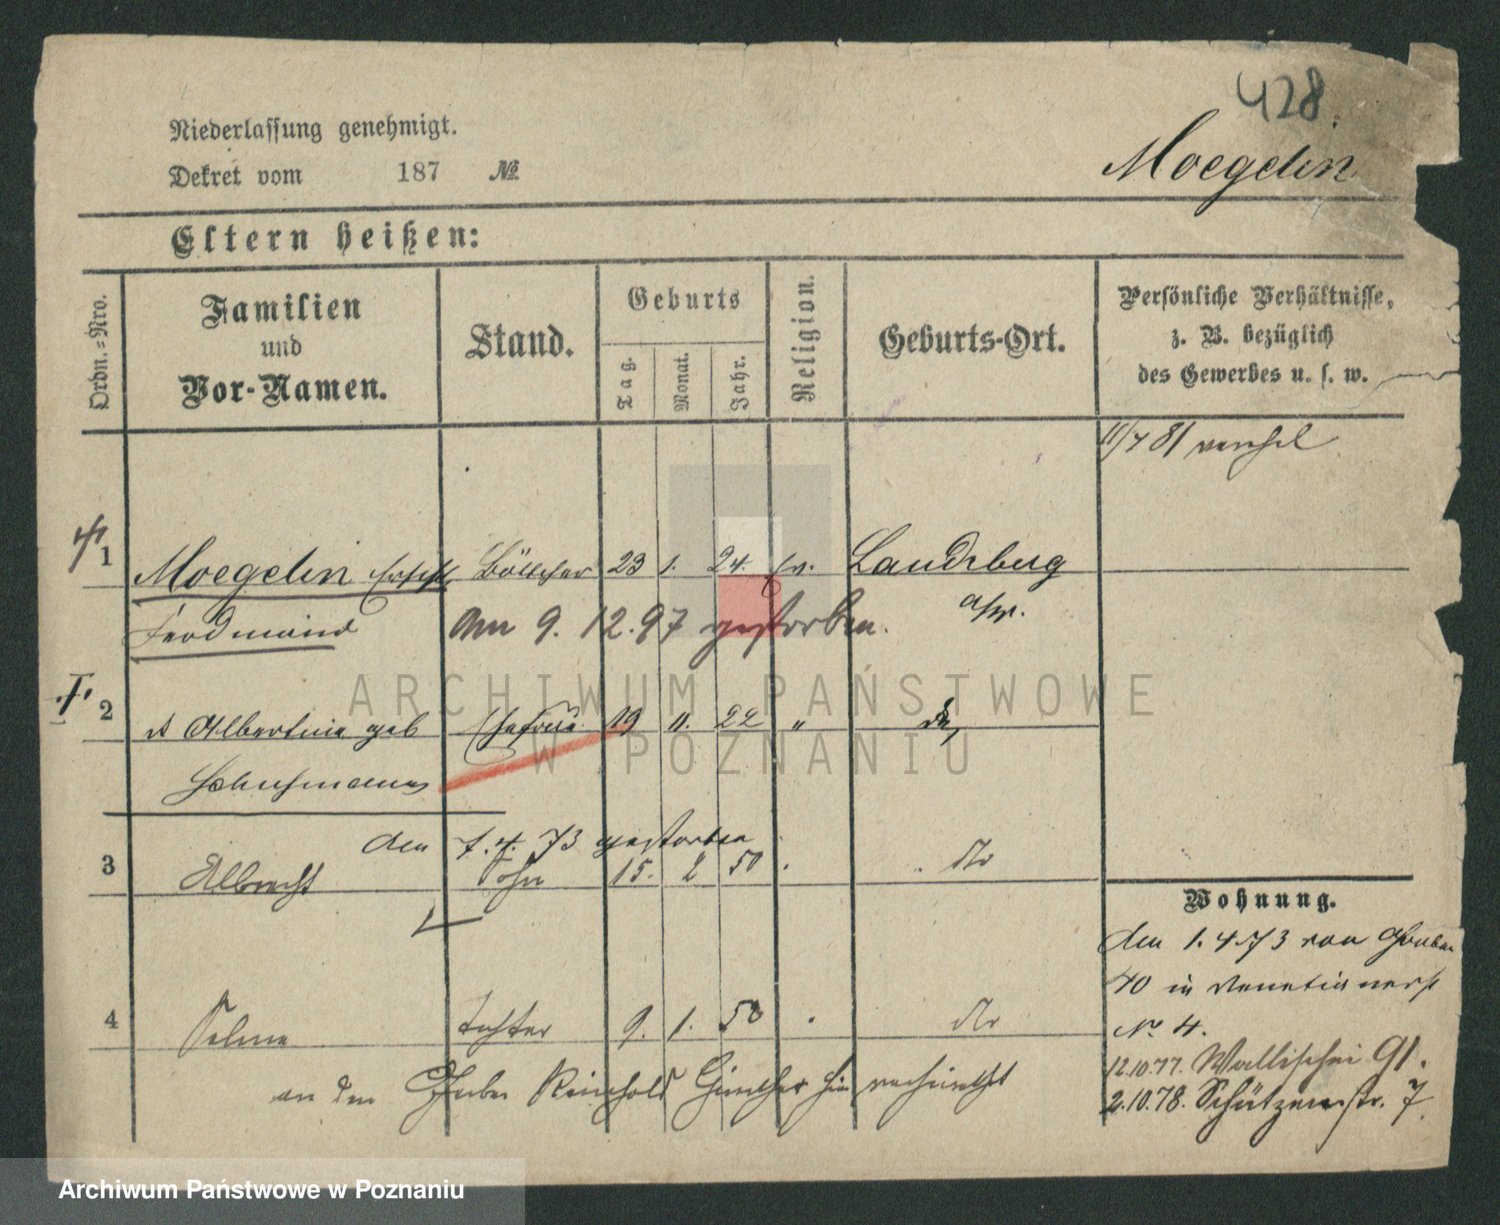 428.
Niederlassung genehmigt.
Dekret vom 187 №
Moegelin
Eltern heißen:
Ordn.=Nro.
Familien
und
Vor-Namen.
Stand.
Geburts
Tag.
Monat.
Jahr.
Religion.
Geburts-Ort.
Persönliche Verhältnisse,
z. B. bezüglich
des Gewerbes u. s. w.
1
Moegelin Böttcher 23 1. 24. ev. Landsberg
Ferdinand am 9. 12. 97 gestorben. a/W.
2 Albertine geb Ehefrau 19 11. 22 "
den 7. 4. 73 gestorben
3 Albrecht Sohn 15. 2 50 dto
Wohnung.
den 1. 4. 73 von Graben
40 in Venetianerst
No 4.
4 Selma Tochter 9. 1. dto
12.10.77. Wallischei 91.
an den Reinhold Günther hier verheirathet
2.10.78. Schützenstr. 7
ARCHIWUM PAŃSTWOWE
W POZNANIU
Archiwum Państwowe w Poznaniu